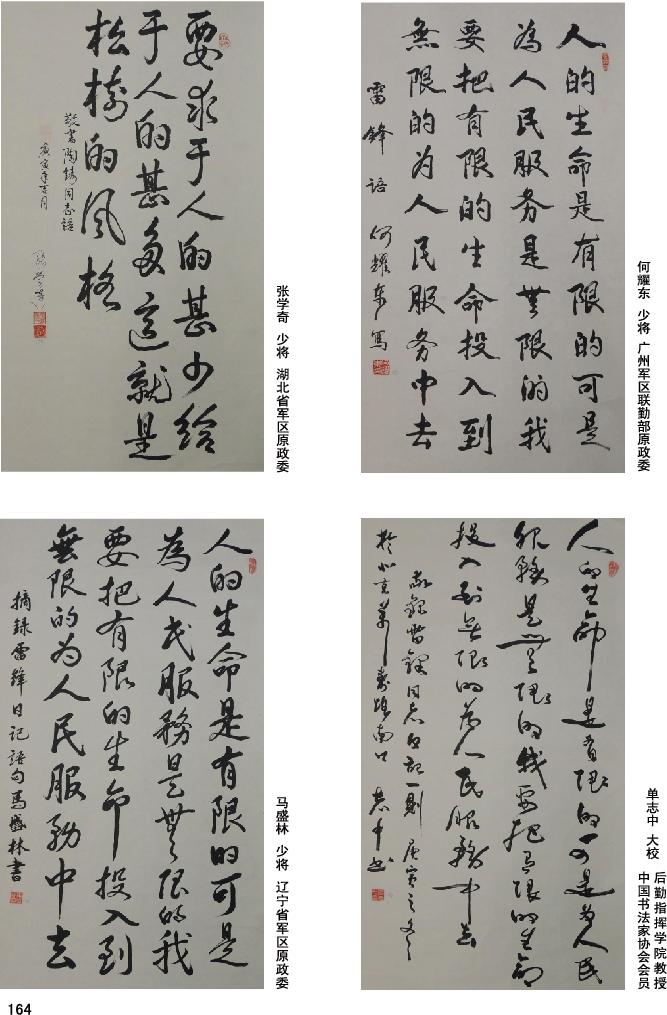 要求于人的甚少给
于人的甚多这就是
松树的风格
敬书陶铸同志语
庚寅年
张学奇 少将 湖北省军区原政委
人的生命是有限的可是
為人民服务是無限的我
要把有限的生命投入到
無限的为人民服务中去
雷锋语 何耀东写
何耀东 少将 广州军区联勤部原政委
人的生命是有限的可是
為人民服務是無限的我
要把有限的生命投入到
無限的为人民服務中去
摘録雷鋒日记語句馬盛林書
马盛林 少将 辽宁省军区原政委
人的生命是有限的可是为人民
服務是無限的我要把有限的生命
投入到無限的為人民服務中去
敬錄雷鋒同志日記一則 庚寅之冬
於北京萬壽路南口 志中书
单志中 大校 后勤指挥学院教授
中国书法家协会会员
164